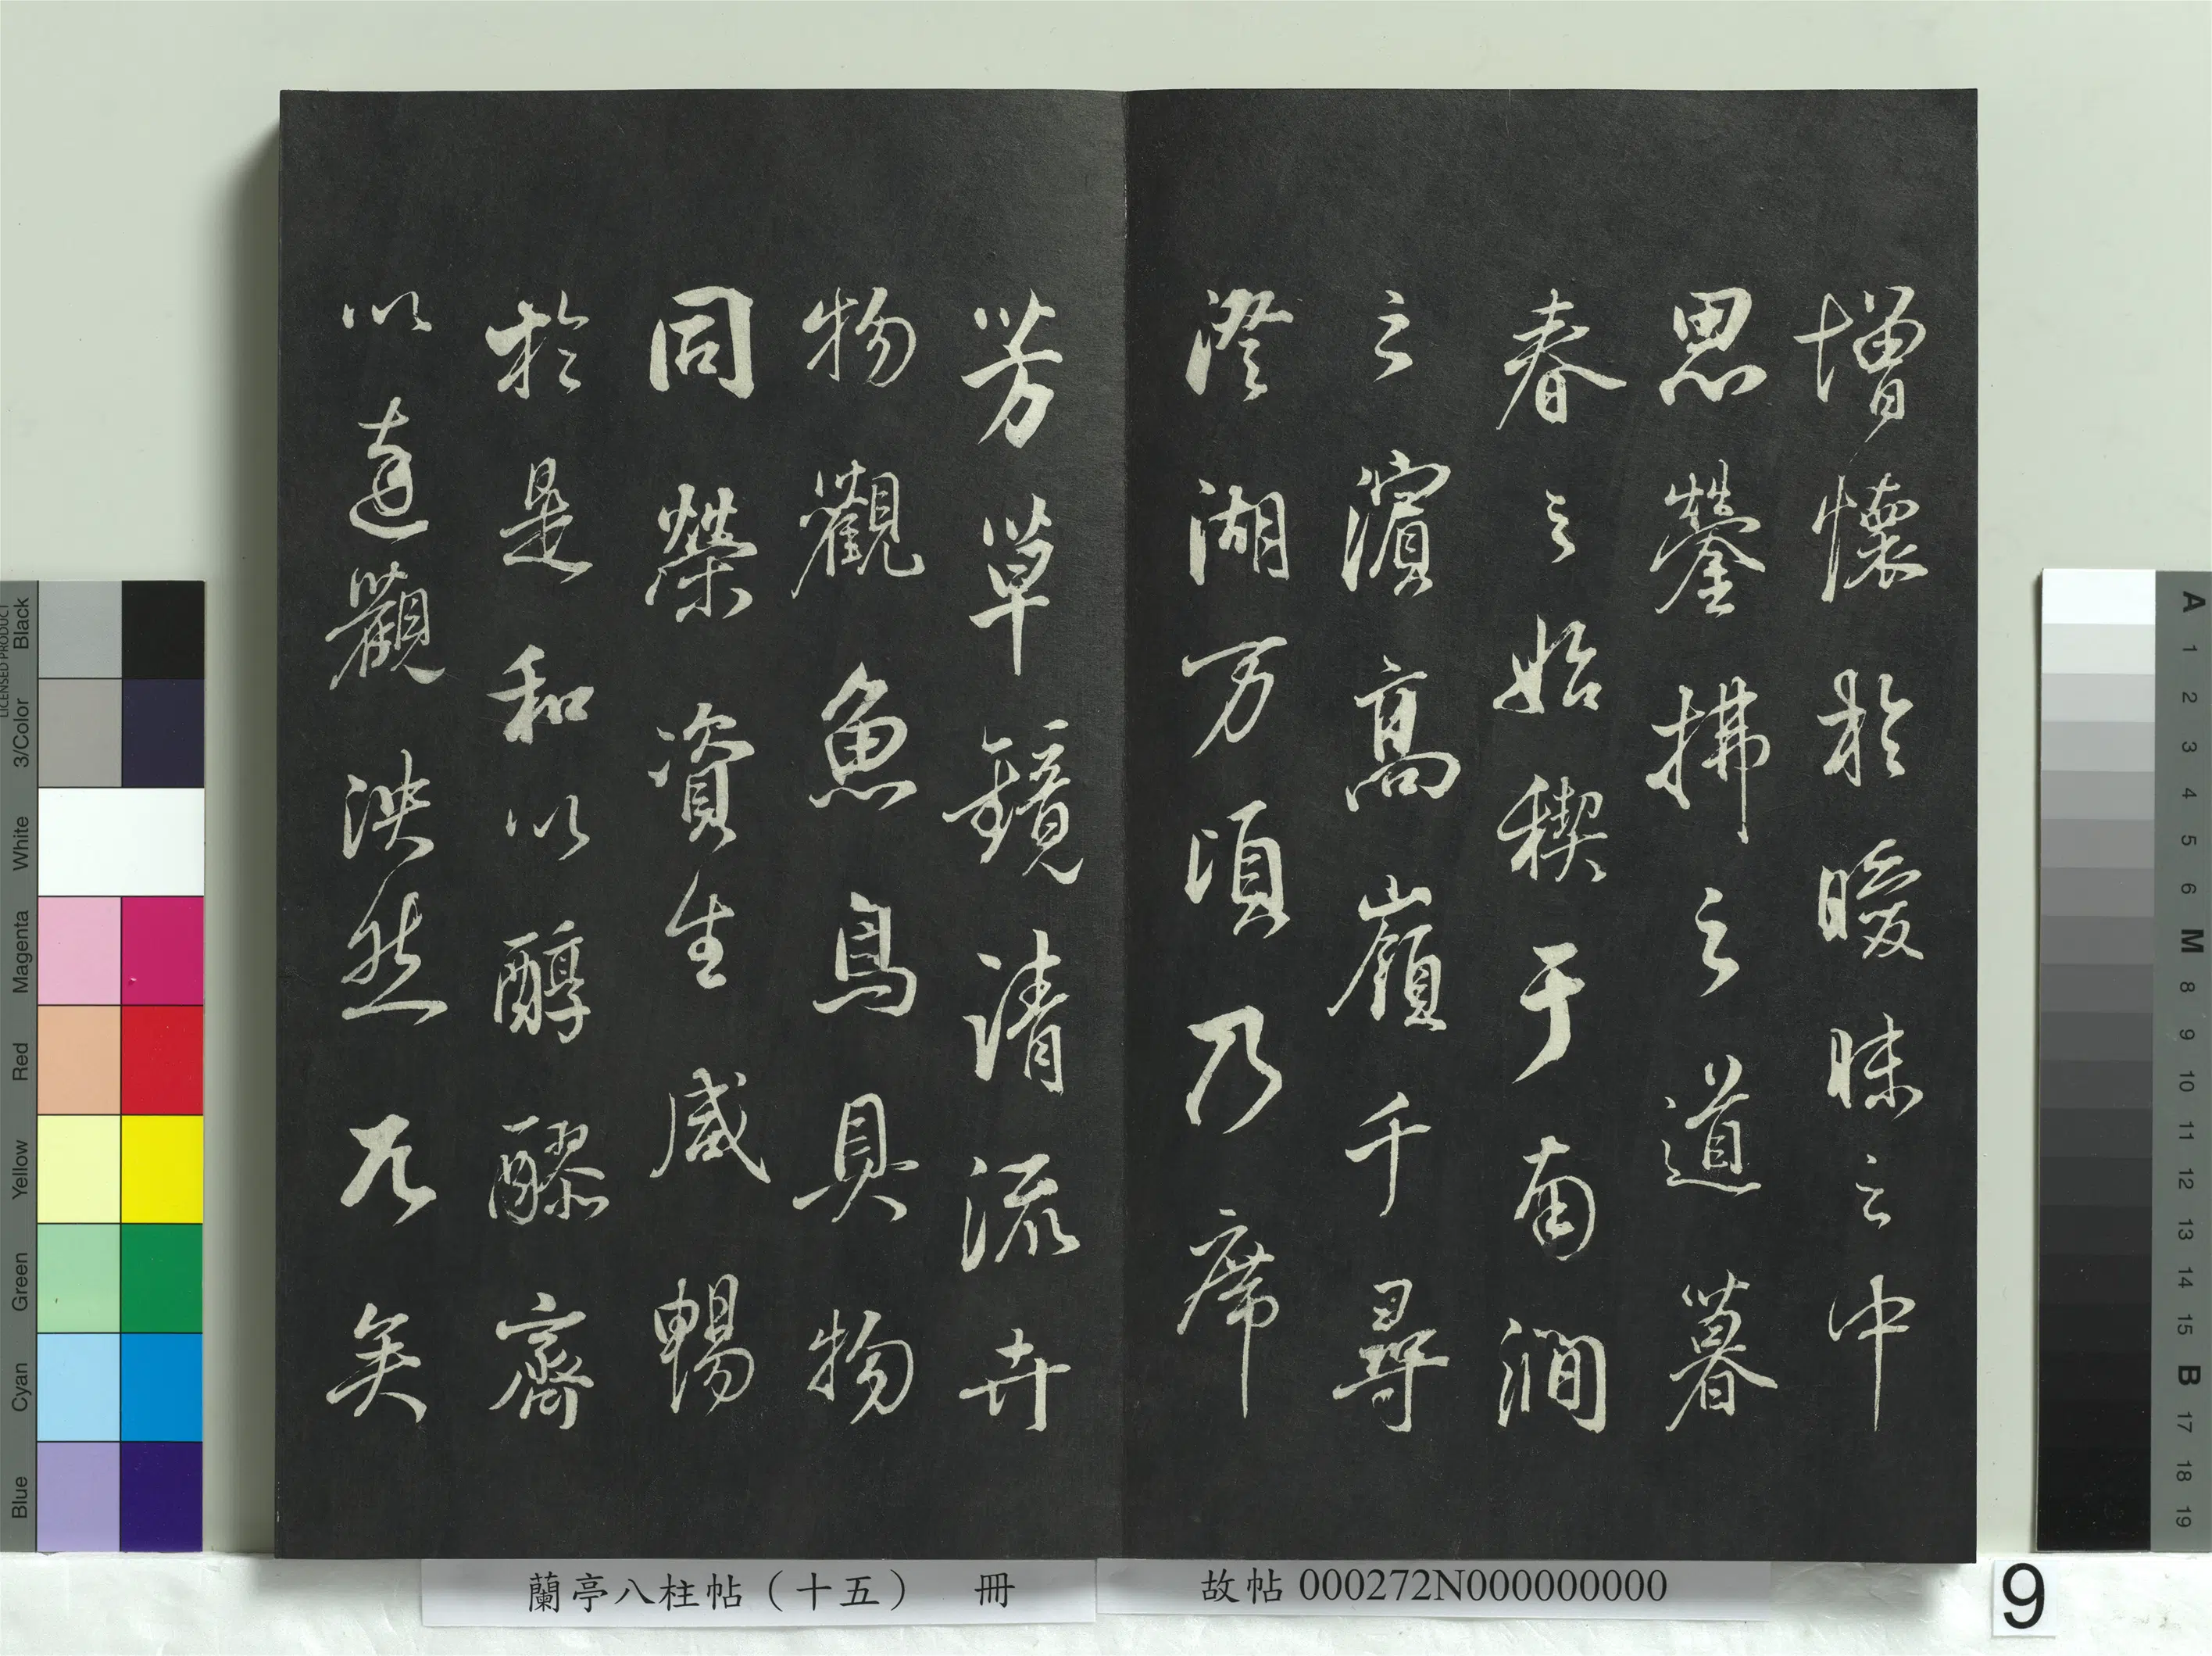 增懷於曖昧之中
思鎣拂之道暮
春之始禊于南澗
之濱高嶺千尋
澄湖万頃乃席
芳草鏡清流卉
物觀魚鳥具物
同榮資生咸暢
於是和以醇醪齊
以達觀泱然兀矣
蘭亭八柱帖（十五） 冊
故帖 000272N000000000
9
Blue Cyan Green Yellow Red Magenta White 3/Color Black
LICENSED PRODUCT
A 1 2 3 4 5 6 M 8 9 10 11 12 13 14 15 B 17 18 19